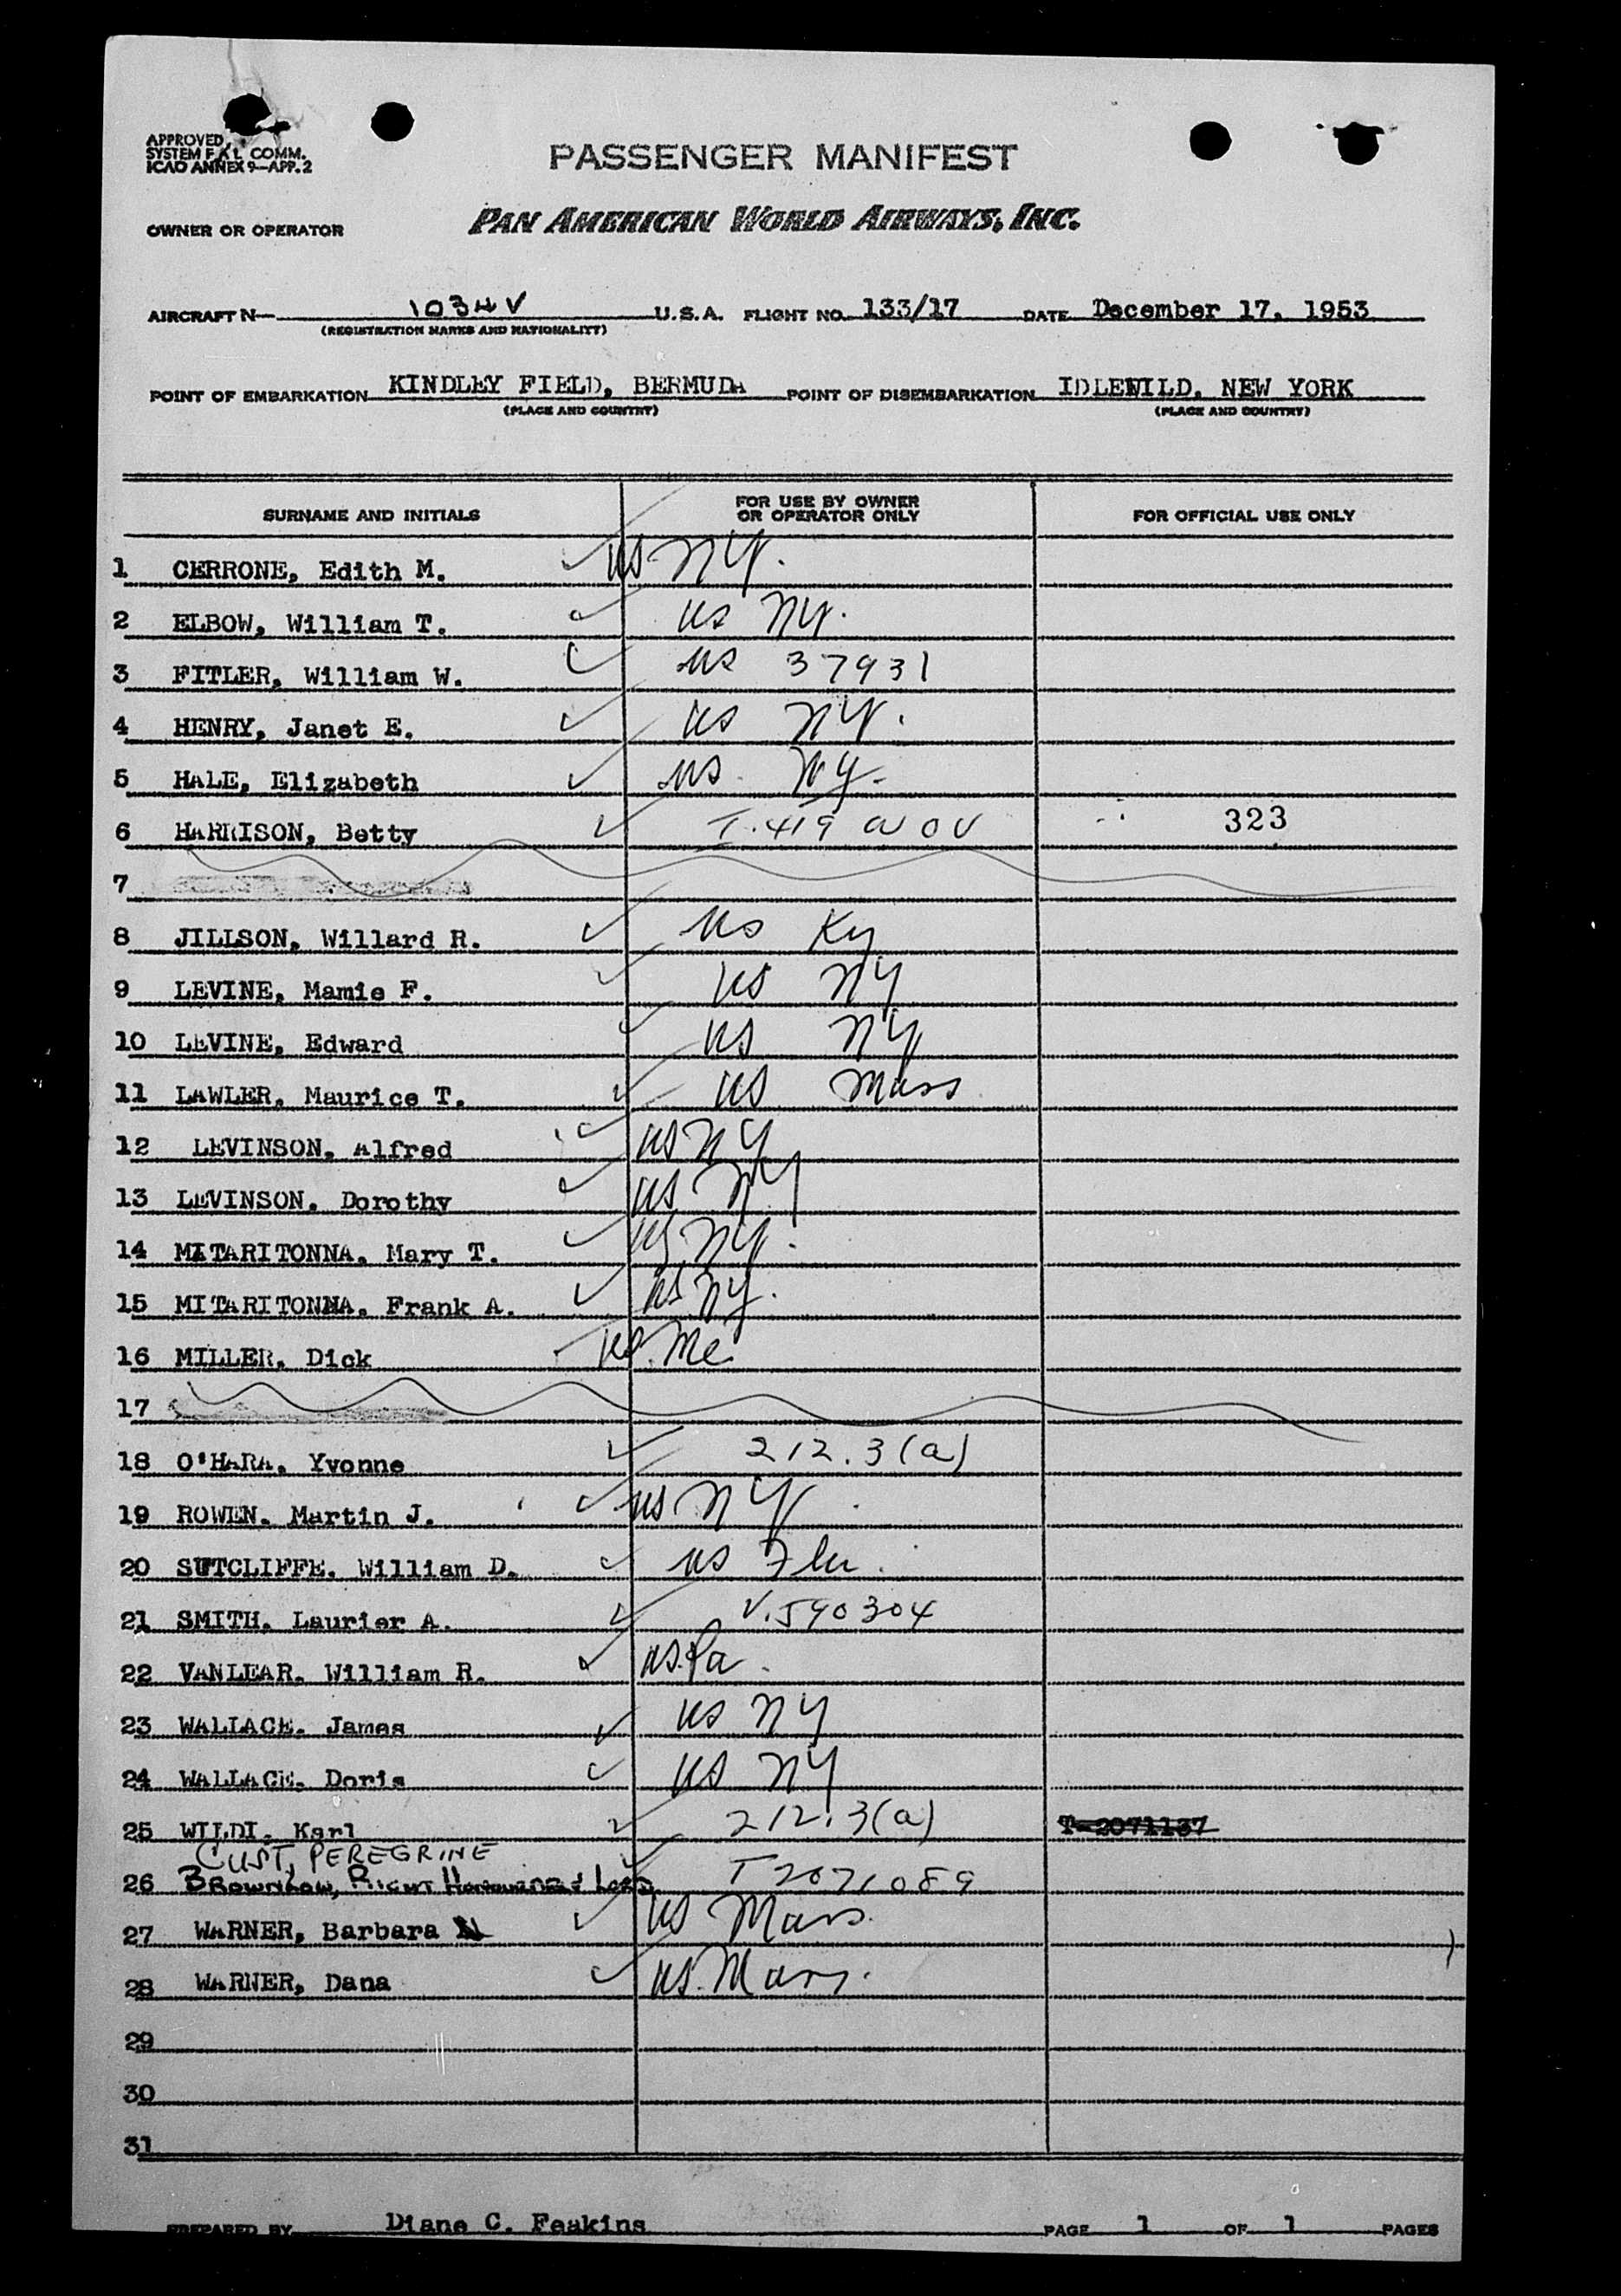 APPROVED,
SYSTEM F A L COMM.
ICAO ANNEX 9—APP. 2
PASSENGER MANIFEST
OWNER OR OPERATOR PAN AMERICAN WORLD AIRWAYS, INC.
AIRCRAFT N— 1034V U.S.A. FLIGHT NO. 133/17 DATE December 17, 1953
(REGISTRATION MARKS AND NATIONALITY)
POINT OF EMBARKATION KINDLEY FIELD, BERMUDA POINT OF DISEMBARKATION IDLEWILD, NEW YORK
(PLACE AND COUNTRY) (PLACE AND COUNTRY)
SURNAME AND INITIALS FOR USE BY OWNER OR OPERATOR ONLY FOR OFFICIAL USE ONLY
1 CERRONE, Edith M. US NY.
2 ELBOW, William T. US NY.
3 FITLER, William W. US 37931
4 HENRY, Janet E. US NY.
5 HALE, Elizabeth US. NY.
6 HARRISON, Betty I.419 NOV 323
7
8 JILLSON, Willard R. US Ky
9 LEVINE, Mamie F. US NY
10 LEVINE, Edward US NY
11 LAWLER, Maurice T. US Mass
12 LEVINSON, Alfred US NY
13 LEVINSON, Dorothy US NY
14 MITARITONNA, Mary T. US NY.
15 MITARITONNA, Frank A. US NY.
16 MILLER, Dick US. Me
17
18 O'HARA, Yvonne 212.3(a)
19 ROWEN, Martin J. US NY
20 SUTCLIFFE, William D. US Fla.
21 SMITH, Laurier A. V.590304
22 VANLEAR, William R. US. Pa.
23 WALLACE, James US NY
24 WALLACE, Doris US NY
25 WILDI, Karl 212.3(a) T-2071137
CUST, PEREGRINE
26 BROWNLOW, RIGHT HONOURABLE LORD T 2071089
27 WARNER, Barbara N US Mass.
28 WARNER, Dana US. Mass.
29
30
31
PREPARED BY Diane C. Feakins PAGE 1 OF 1 PAGES